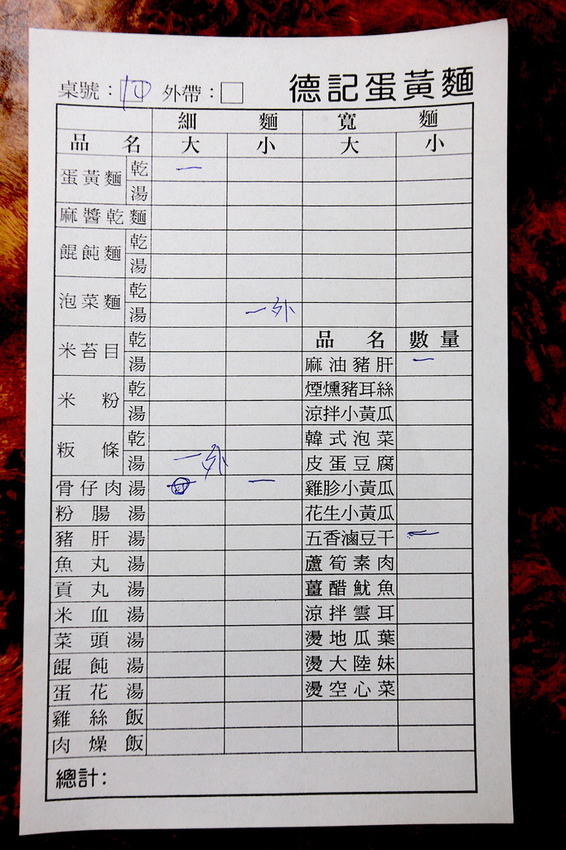 桌號：10 外帶：□ 德記蛋黃麵
細麵 寬麵
品名 大 小 大 小
蛋黃麵 乾 一
湯
麻醬乾麵
餛飩麵 乾
湯
泡菜麵 乾
湯 一外
米苔目 乾 品名 數量
湯 麻油豬肝 一
米粉 乾 煙燻豬耳絲
湯 涼拌小黃瓜
粄條 乾 韓式泡菜
湯 一外 皮蛋豆腐
骨仔肉湯 一 雞胗小黃瓜
粉腸湯 花生小黃瓜
豬肝湯 五香滷豆干 一
魚丸湯 蘆筍素肉
貢丸湯 薑醋魷魚
米血湯 涼拌雲耳
菜頭湯 燙地瓜葉
餛飩湯 燙大陸妹
蛋花湯 燙空心菜
雞絲飯
肉燥飯
總計：